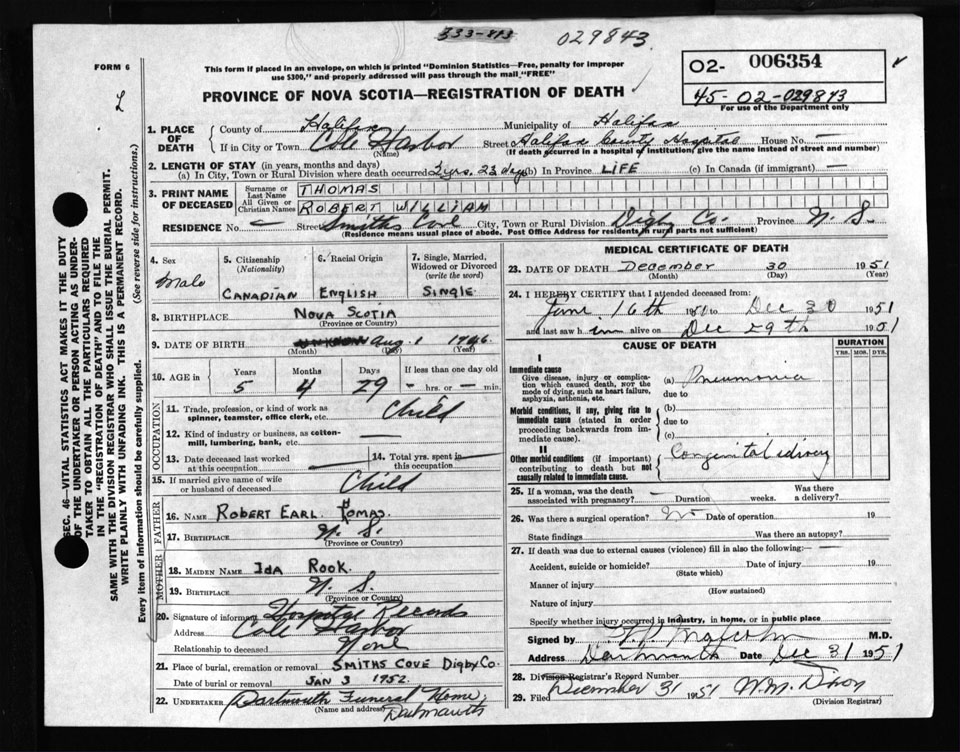 333-813
029843
FORM 6
This form if placed in an envelope, on which is printed "Dominion Statistics—Free, penalty for improper
use $300," and properly addressed will pass through the mail "FREE"
PROVINCE OF NOVA SCOTIA—REGISTRATION OF DEATH
02- 006354
45-02-029843
For use of the Department only
1. PLACE OF DEATH
County of Halifax Municipality of Halifax
If in City or Town Cole Harbor Street Halifax County Hospital House No. —
(Name) (If death occurred in a hospital or institution, give the name instead of street and number)
2. LENGTH OF STAY (in years, months and days)
(a) In City, Town or Rural Division where death occurred 2 yrs. 23 days (b) In Province LIFE (c) In Canada (if immigrant) —
3. PRINT NAME OF DECEASED
Surname or Last Name THOMAS
All Given or Christian Names ROBERT WILLIAM
RESIDENCE No. — Street Smiths Cove City, Town or Rural Division Digby Co. Province N. S.
(Residence means usual place of abode. Post Office Address for residents of rural parts not sufficient)
4. Sex Male
5. Citizenship (Nationality) CANADIAN
6. Racial Origin ENGLISH
7. Single, Married, Widowed or Divorced (write the word) SINGLE
8. BIRTHPLACE NOVA SCOTIA
(Province or Country)
9. DATE OF BIRTH Aug. 1 1946.
(Month) (Day) (Year)
10. AGE in Years Months Days If less than one day old
5 4 29 — hrs. or — min.
OCCUPATION
11. Trade, profession, or kind of work as spinner, teamster, office clerk, etc. Child
12. Kind of industry or business, as cotton-mill, lumbering, bank, etc. —
13. Date deceased last worked at this occupation — 14. Total yrs. spent in this occupation —
15. If married give name of wife or husband of deceased Child
FATHER
16. NAME ROBERT EARL THOMAS.
17. BIRTHPLACE N. S.
(Province or Country)
MOTHER
18. MAIDEN NAME IDA ROOK.
19. BIRTHPLACE N. S.
(Province or Country)
20. Signature of informant Hospital Records
Address Cole Harbor
Relationship to deceased None
21. Place of burial, cremation or removal SMITHS COVE DIGBY CO.
Date of burial or removal JAN 3 1952.
22. UNDERTAKER Dartmouth Funeral Home,
(Name and address) Dartmouth
MEDICAL CERTIFICATE OF DEATH
23. DATE OF DEATH December 30 1951
(Month) (Day) (Year)
24. I HEREBY CERTIFY that I attended deceased from:
June 16th 1951 to Dec 30 1951
and last saw him alive on Dec 29th 1951
CAUSE OF DEATH DURATION
YRS. MOS. DYS.
I
Immediate cause
Give disease, injury or complication which caused death, NOT the mode of dying, such as heart failure, asphyxia, asthenia, etc.
(a) Pneumonia
due to
Morbid conditions, if any, giving rise to immediate cause (stated in order proceeding backwards from immediate cause).
(b)
due to
(c)
II
Other morbid conditions (if important) contributing to death but not causally related to immediate cause.
Congenital idiocy
25. If a woman, was the death associated with pregnancy? — Duration weeks. Was there a delivery?
26. Was there a surgical operation? No Date of operation 19
State findings Was there an autopsy?
27. If death was due to external causes (violence) fill in also the following:— —
Accident, suicide or homicide? Date of injury 19
(State which)
Manner of injury
(How sustained)
Nature of injury
Specify whether injury occurred in industry, in home, or in public place
Signed by Malcolm M.D.
Address Dartmouth Date Dec 31 1951
28. Division Registrar's Record Number
29. Filed December 31 1951 W.M. Dixon
(Division Registrar)
SEC. 46—VITAL STATISTICS ACT MAKES IT THE DUTY
OF THE UNDERTAKER OR PERSON ACTING AS UNDER-
TAKER TO OBTAIN ALL THE PARTICULARS REQUIRED
IN THE "REGISTRATION OF DEATH" AND TO FILE THE
SAME WITH THE DIVISION REGISTRAR WHO SHALL ISSUE THE BURIAL PERMIT.
WRITE PLAINLY WITH UNFADING INK. THIS IS A PERMANENT RECORD.
Every item of information should be carefully supplied. (See reverse side for instructions.)